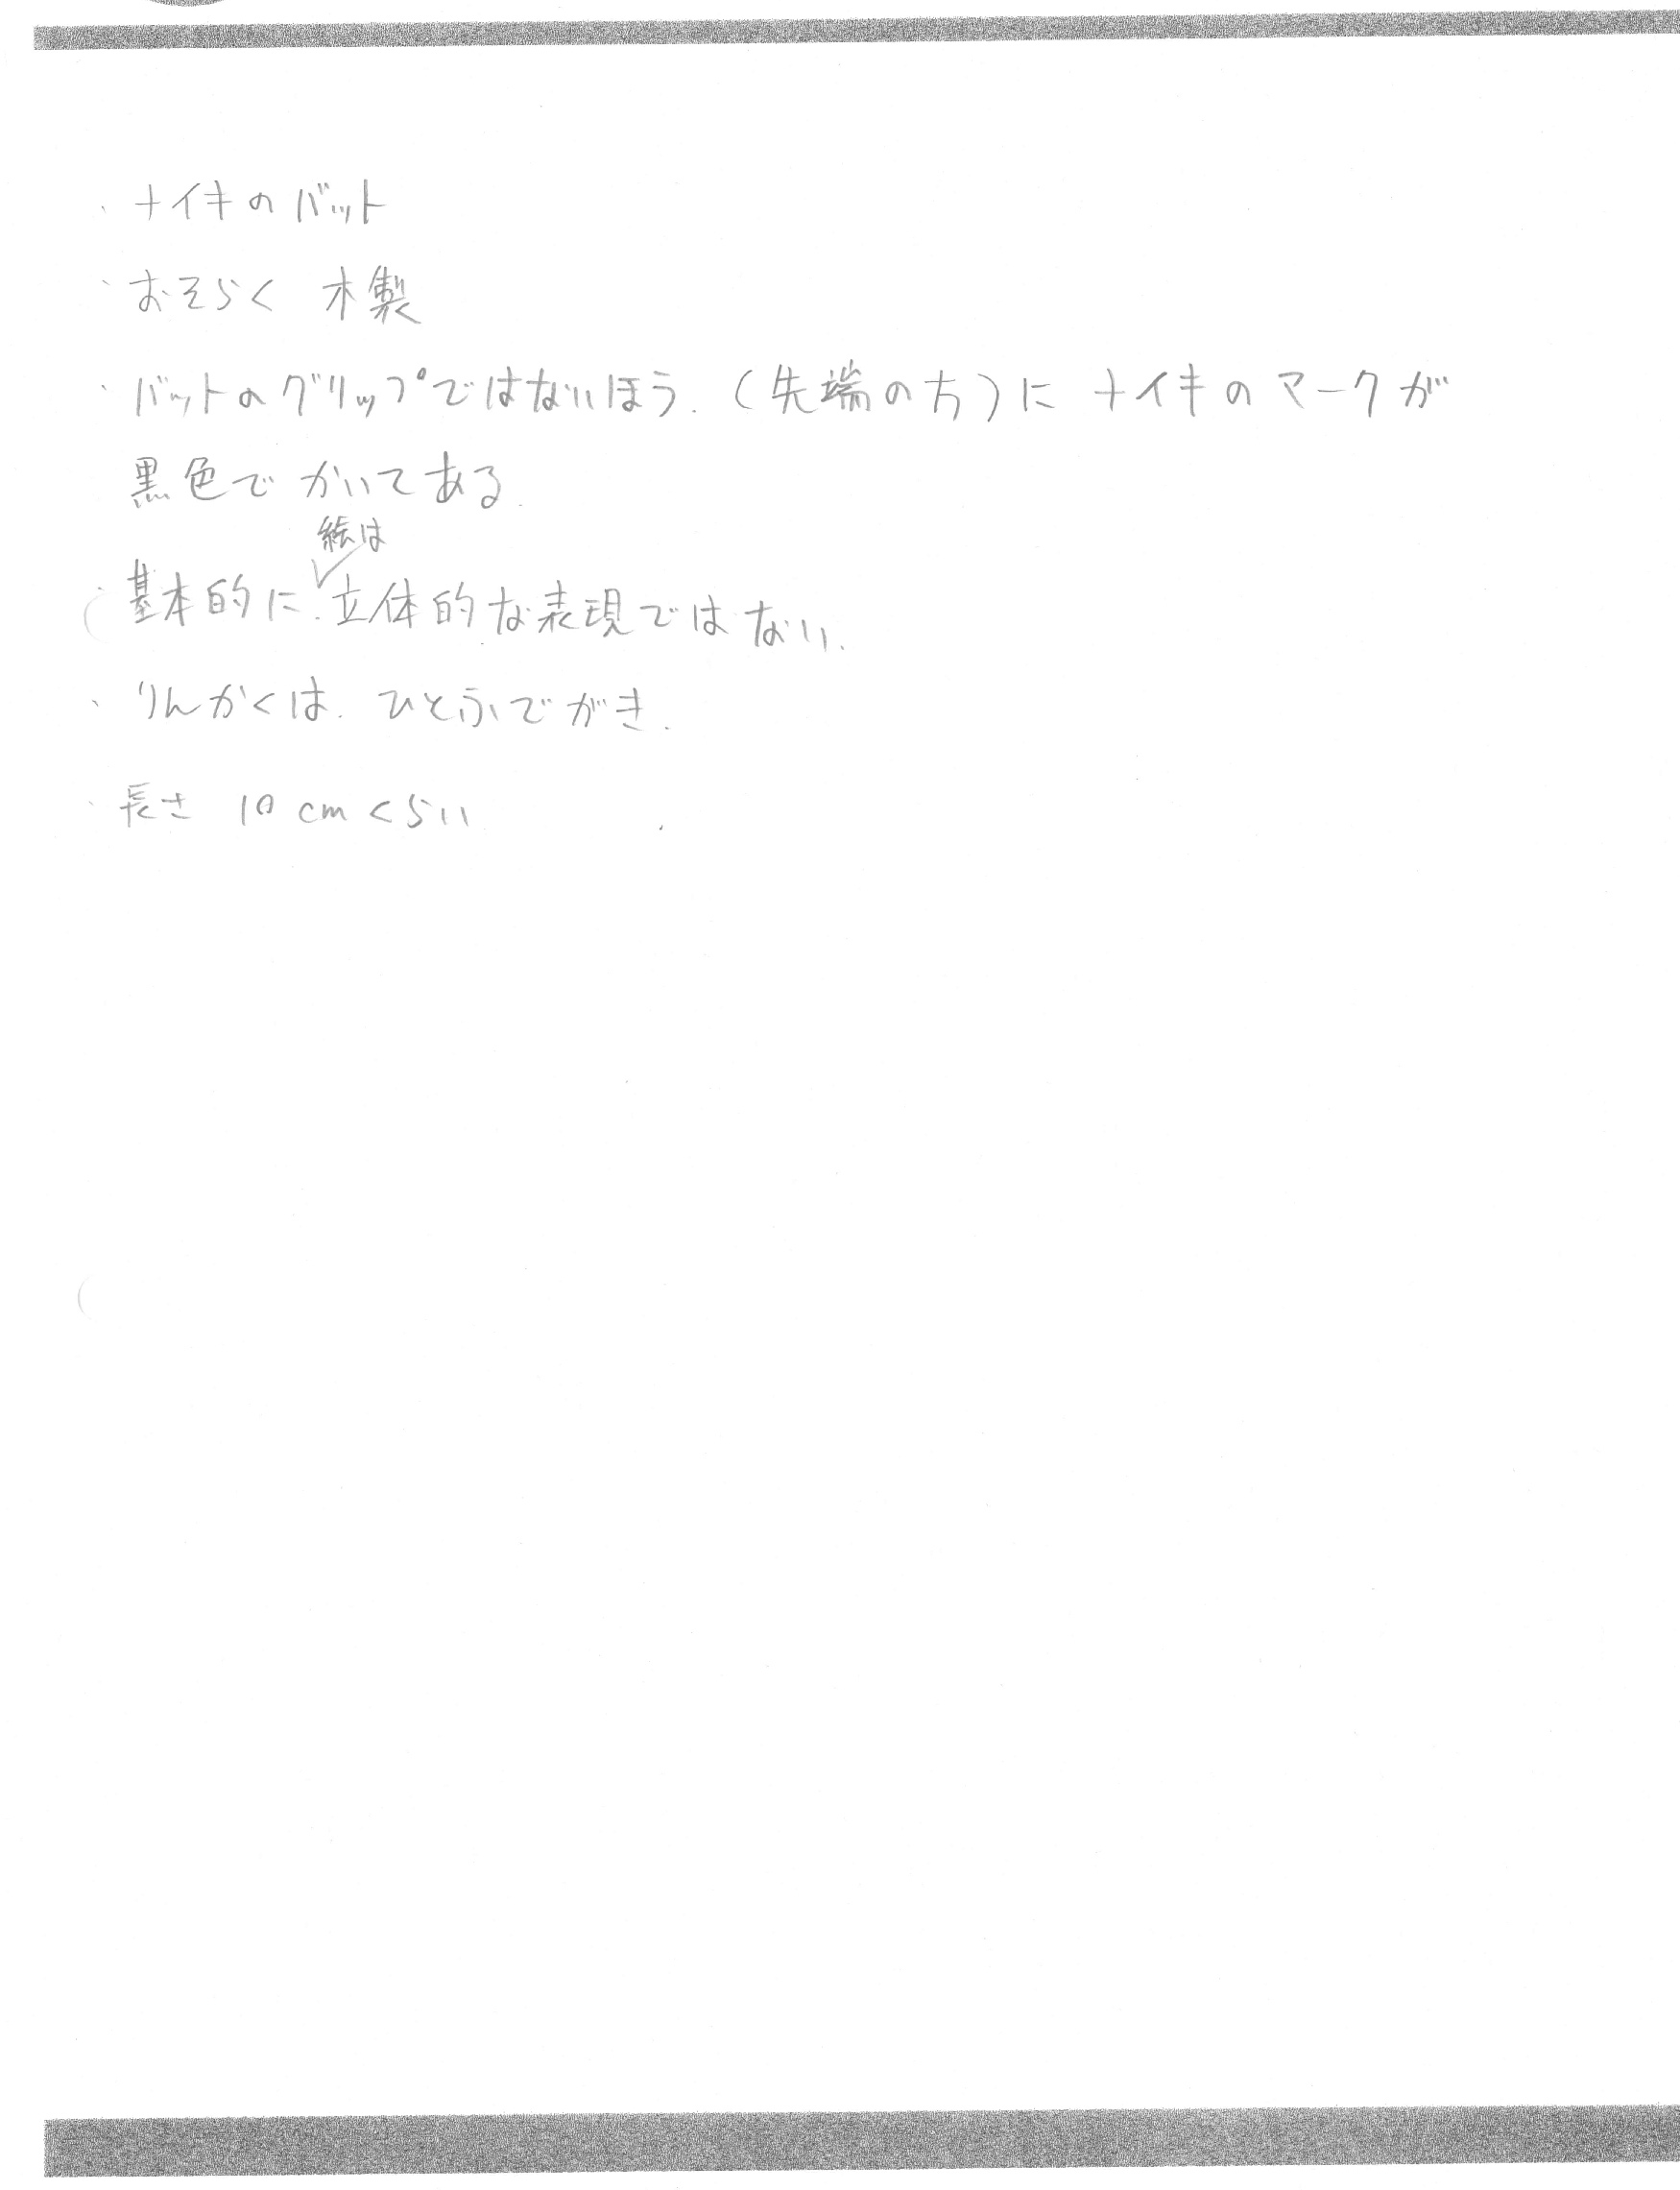 ・ナイキのバット
・おそらく 木製
・バットのグリップではないほう.(先端の方)に ナイキのマークが
黒色で かいてある.
絵は
・基本的に.立体的な表現ではない.
・りんかくは. ひとふでがき.
・長さ 10cmくらい